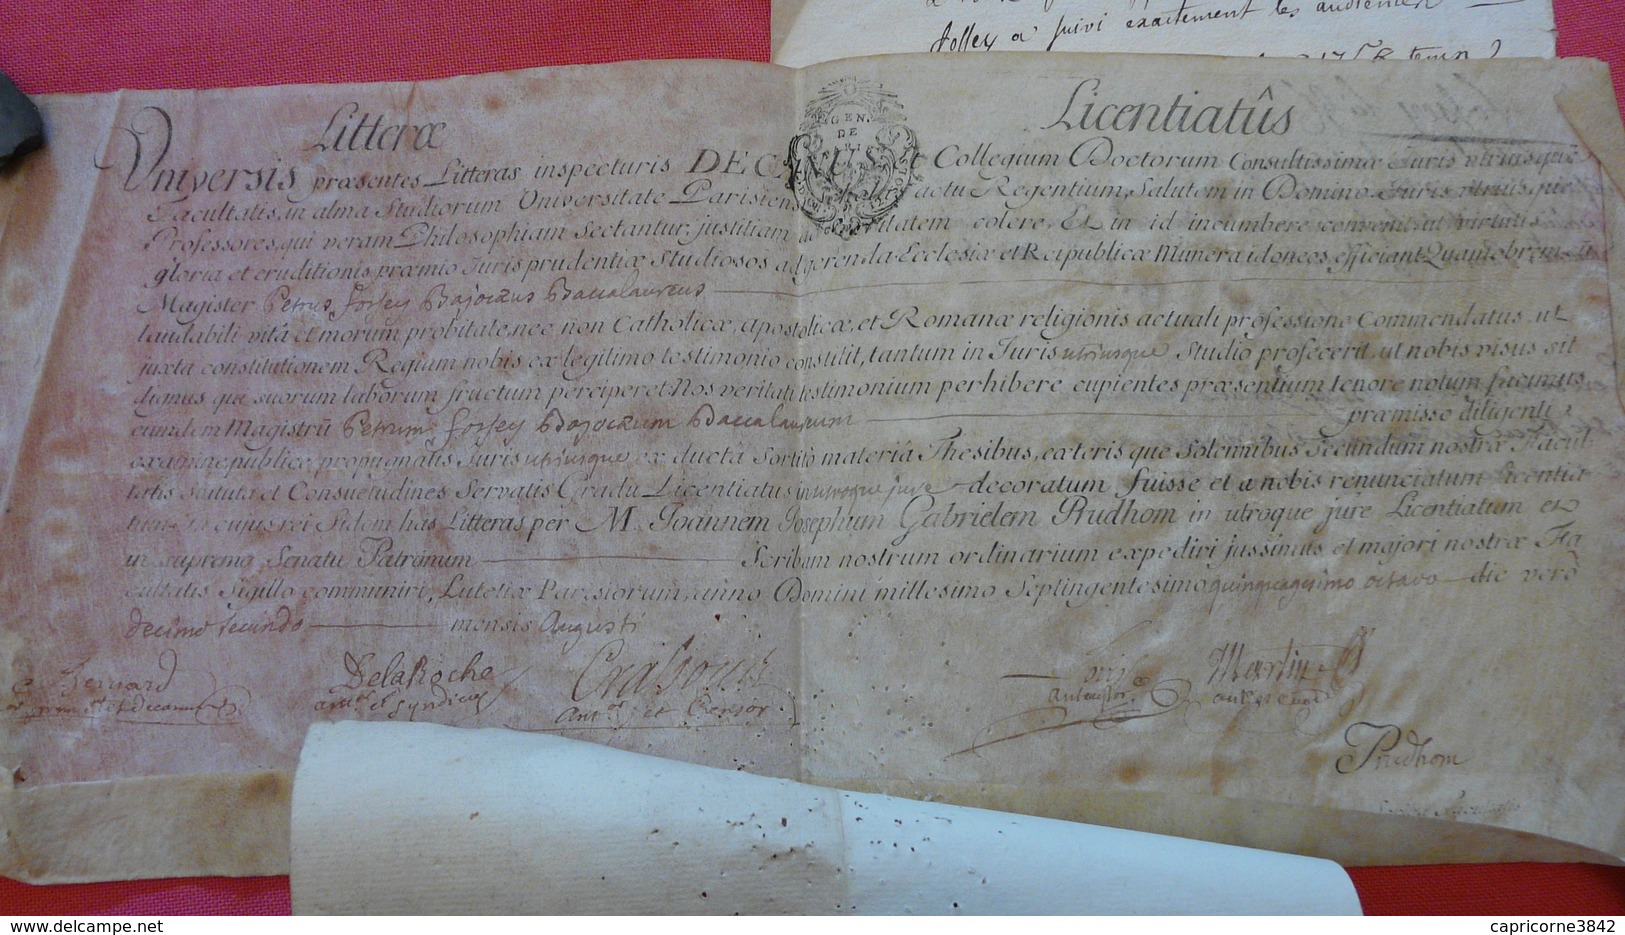 Jolley a suivi exactement les audiences
Litteræ Licentiatûs
GEN.
DE
PARIS
Universis præsentes Litteras inspecturis DECANUS et Collegium Doctorum Consultissimæ Juris utriusque
Facultatis, in alma Studiorum Universitate Parisiensi actu Regentium, Salutem in Domino. Juris utriusque
Professores, qui veram Philosophiam Sectantur, justitiam ac colere, Et in id incumbere convenit, ut virtutis
gloria et eruditionis præmio Juris prudentiæ Studiosos ad gerenda Ecclesiæ et Reipublicæ Munera idoneos efficiant Quamobrem
Magister Petrus Baccalaureus
laudabili vitâ et morum probitate, nec non Catholicæ, apostolicæ, et Romanæ religionis actuali professione Commendatus, ut
juxta constitutionem Regiam nobis ex legitimo testimonio constitit, tantum in Juris utriusque Studio profecerit, ut nobis visus sit
dignus qui suorum laborum fructum perciperet. Nos veritati testimonium perhibere cupientes præsentium tenore notum facimus
eumdem Magistrū Petrum Baccalaureum præmisso diligenti
examine, publice propugnatis Juris utriusque ex ducta Sortitò materiâ Thesibus, cæteris que Solemnibus Secundum nostræ Facul
tatis Statuta et Consuetudines Servatis Gradu Licentiatus in utroque jure decoratum fuisse et a nobis renunciatum Licentia
tum in cujus rei Fidem has Litteras per M. Joannem Josephum Gabrielem Prudhom in utroque jure Licentiatum et
in supremo Senatu Patronum Scribam nostrum ordinarium expediri jussimus et majori nostræ Fa
cultatis Sigillo communiri, Lutetiæ Parisiorum, anno Domini millesimo Septingentesimo quinquagesimo octavo die verò
decimo secundo mensis Augusti
Bernard DelaRoche Martin
et Syndicus et Censor
Prudhom
capricorne3842